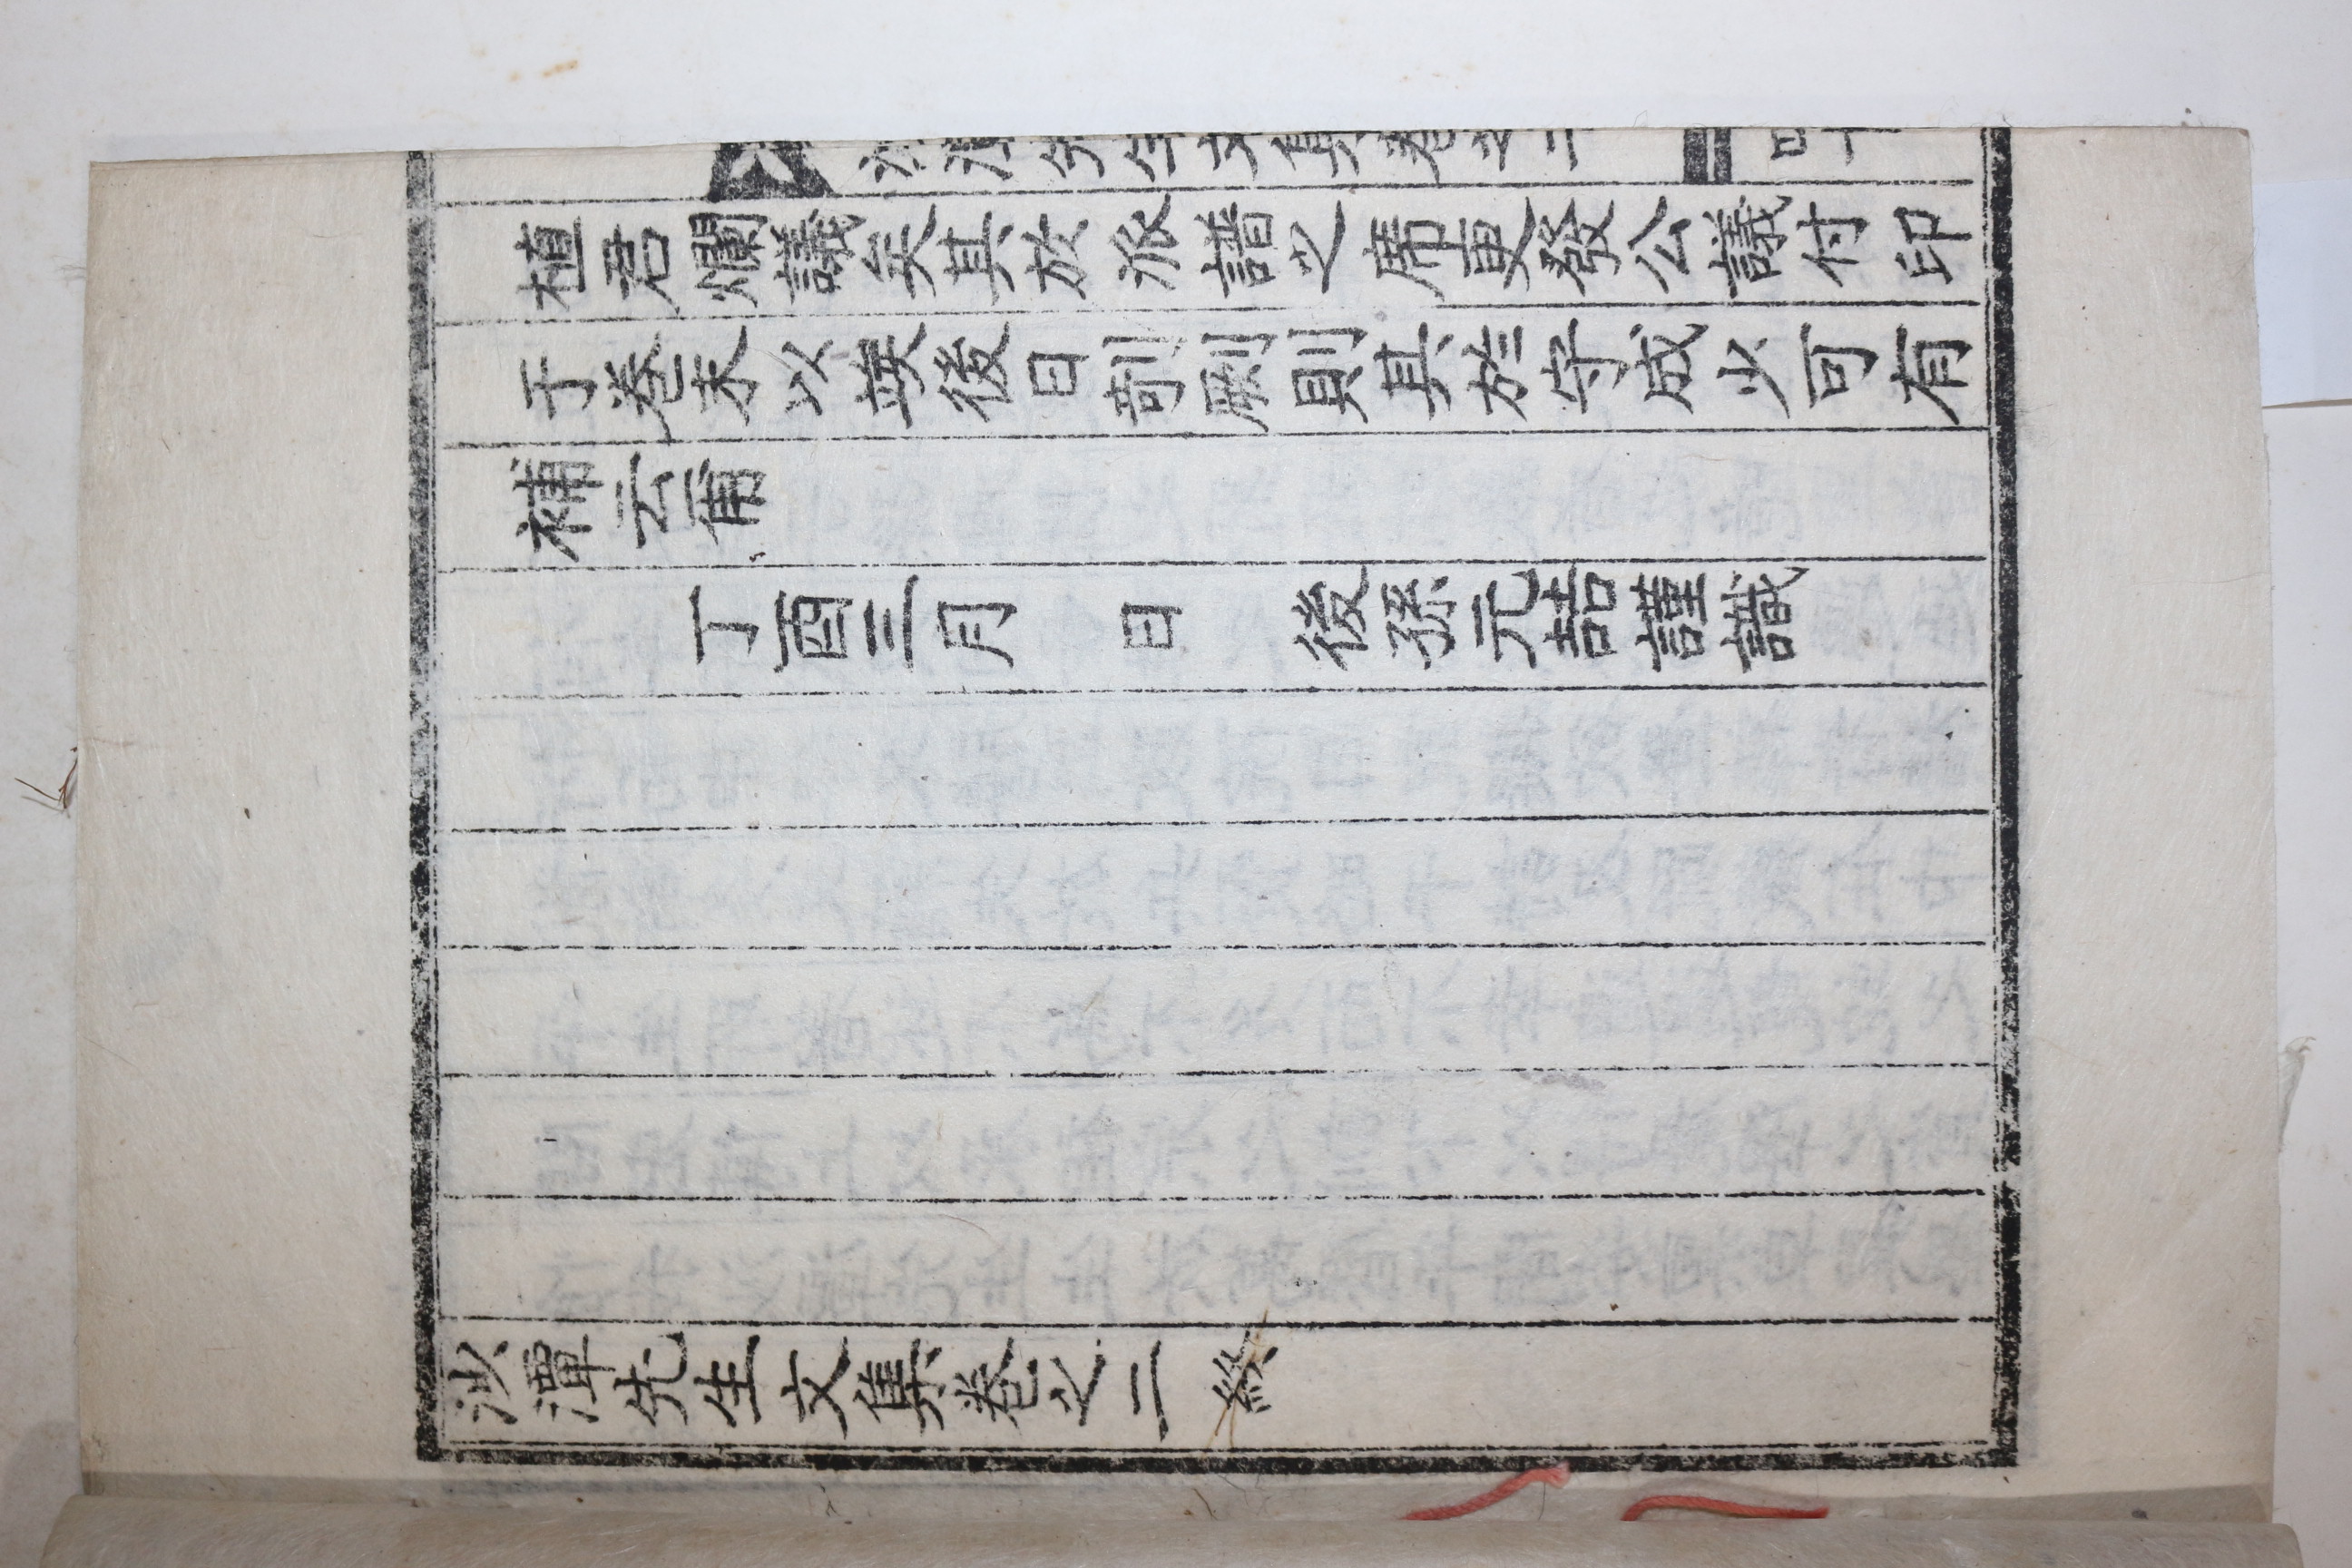 沙潭先生文集卷之二
四十
植君爛議矣其於派譜之席更發公議付印
于卷末以竢後日剞劂則其於守成少可有
補云爾
丁酉三月　日　後孫元喆謹識
沙潭先生文集卷之二 終